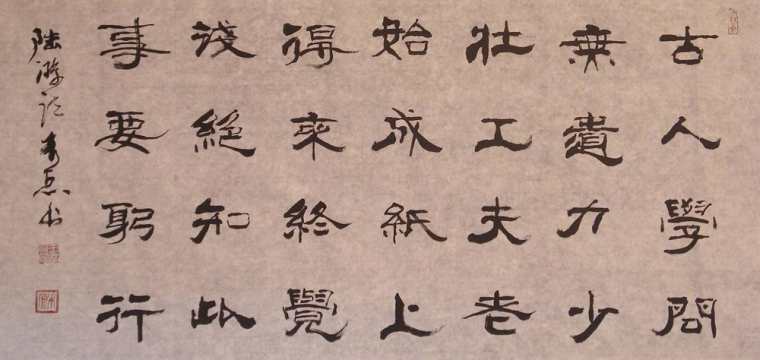 古人學問
無遺力少
壯工夫老
始成紙上
得來終覺
淺絕知此
事要躬行
陸游詩 书